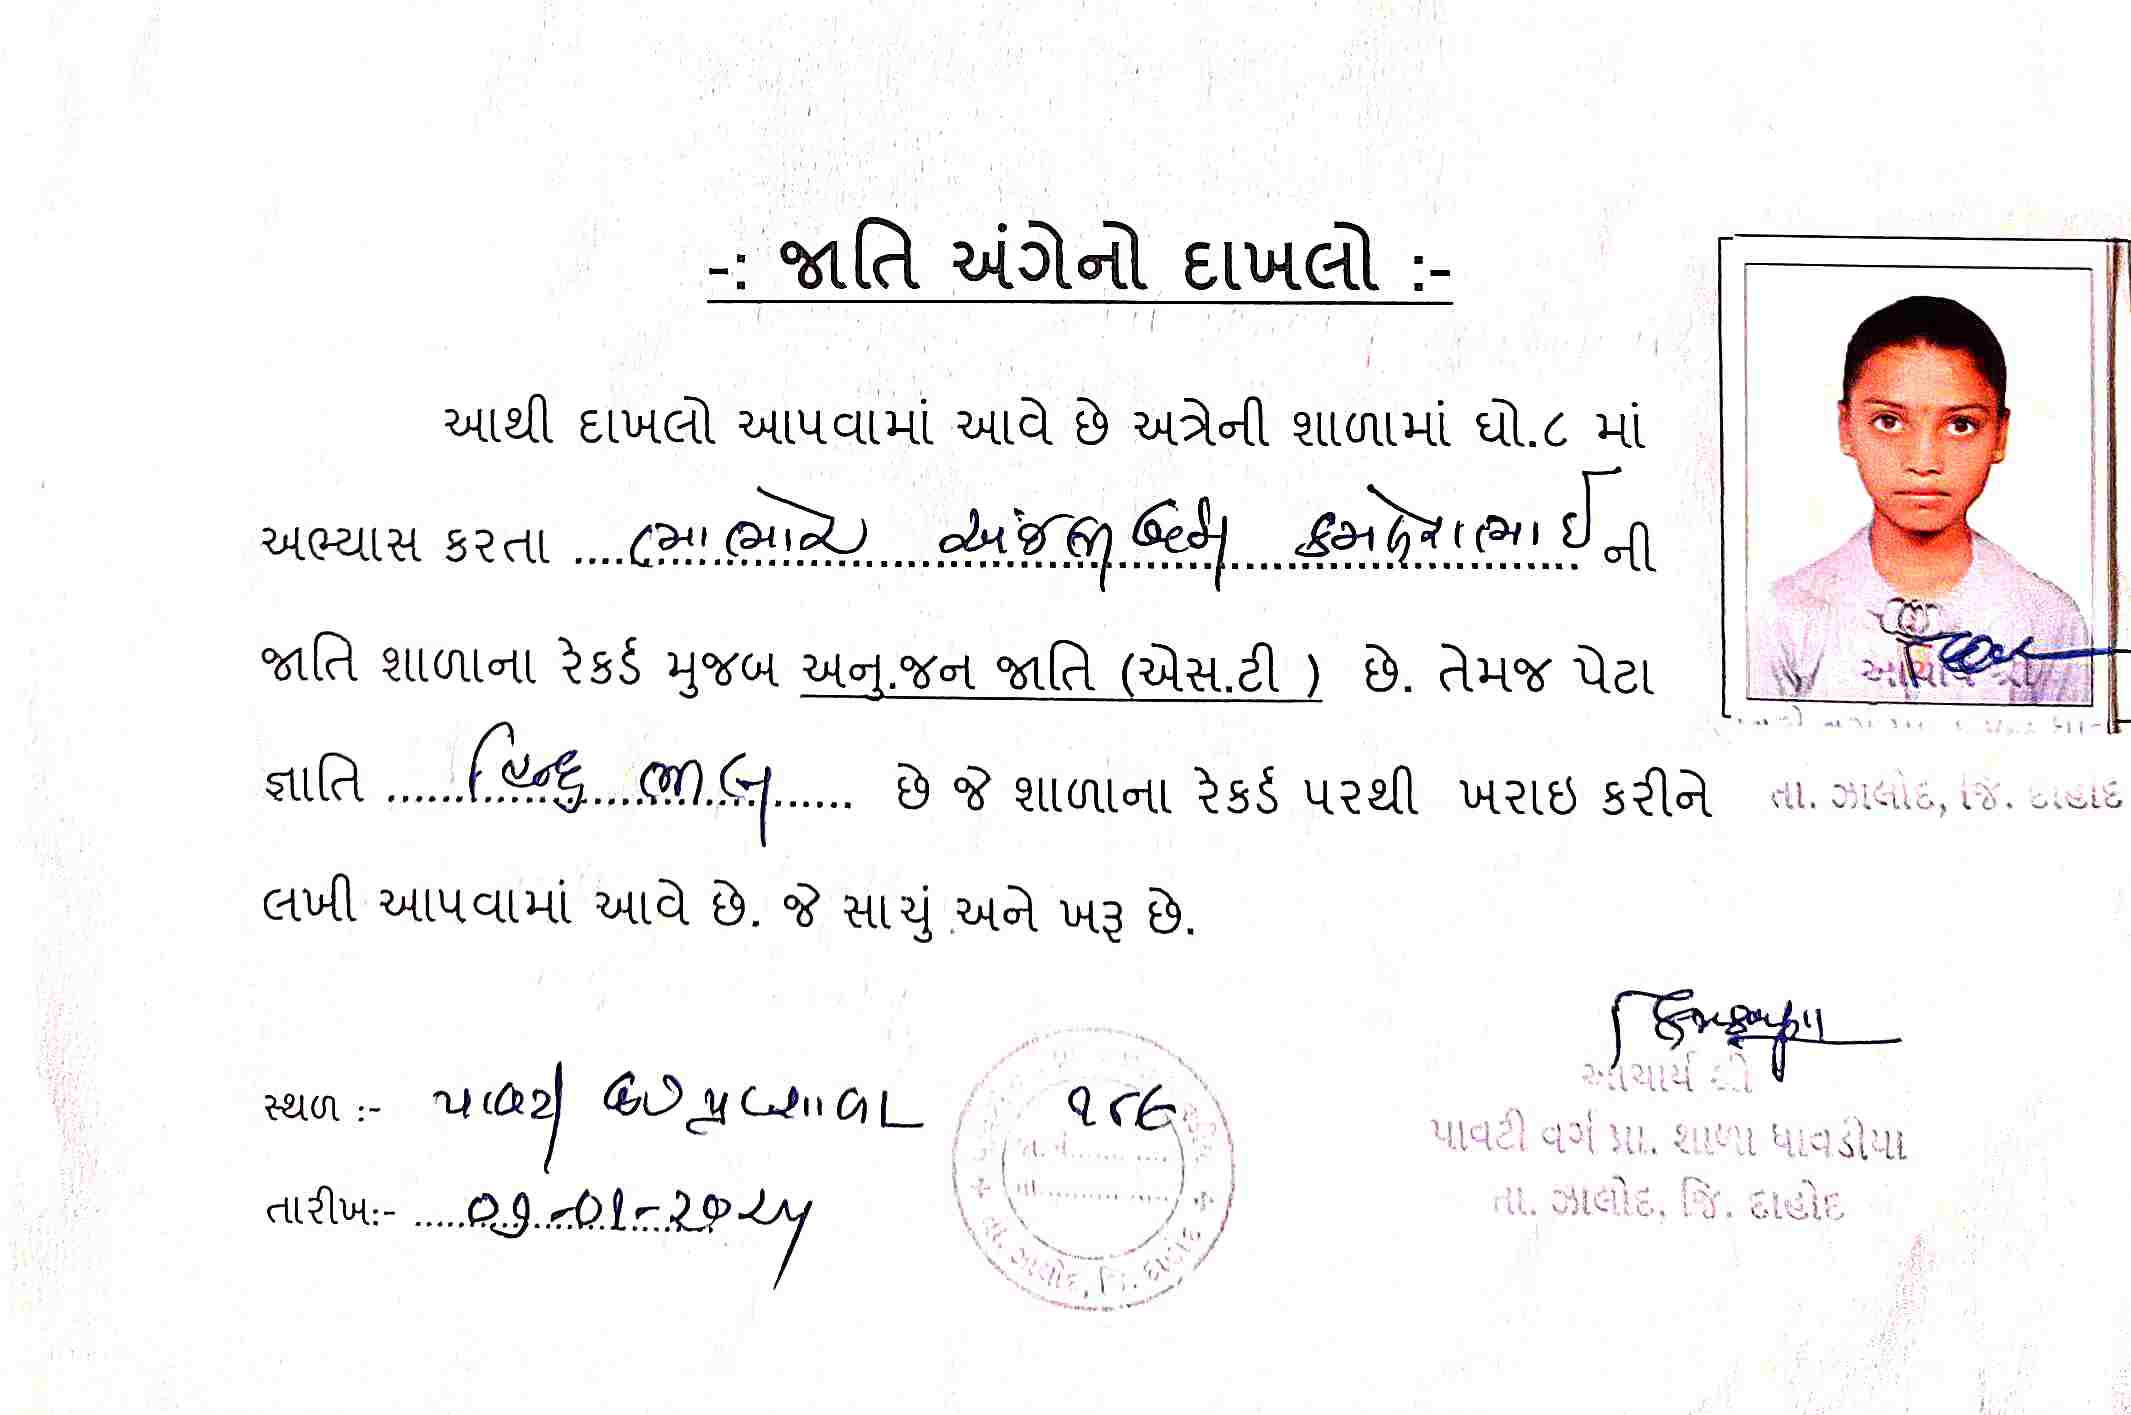 -: જાતિ અંગેનો દાખલો :-
આથી દાખલો આપવામાં આવે છે અત્રેની શાળામાં ધો.૮ માં
અભ્યાસ કરતા .... ભાભોર અંજલીબેન કમલેશભાઈ ની
જાતિ શાળાના રેકર્ડ મુજબ અનુ.જન જાતિ (એસ.ટી ) છે. તેમજ પેટા
જ્ઞાતિ ...... હિન્દુ ભીલ ...... છે જે શાળાના રેકર્ડ પરથી ખરાઇ કરીને
લખી આપવામાં આવે છે. જે સાચું અને ખરૂ છે.
આચાર્ય શ્રી
તા. ઝાલોદ, જિ. દાહોદ
સ્થળ :- પાવટી
તારીખ:- ..... 09-01-2025
આચાર્ય શ્રી
પાવટી વર્ગ પ્રા. શાળા ધાવડીયા
તા. ઝાલોદ, જિ. દાહોદ
તા. ઝાલોદ, જિ. દાહોદ